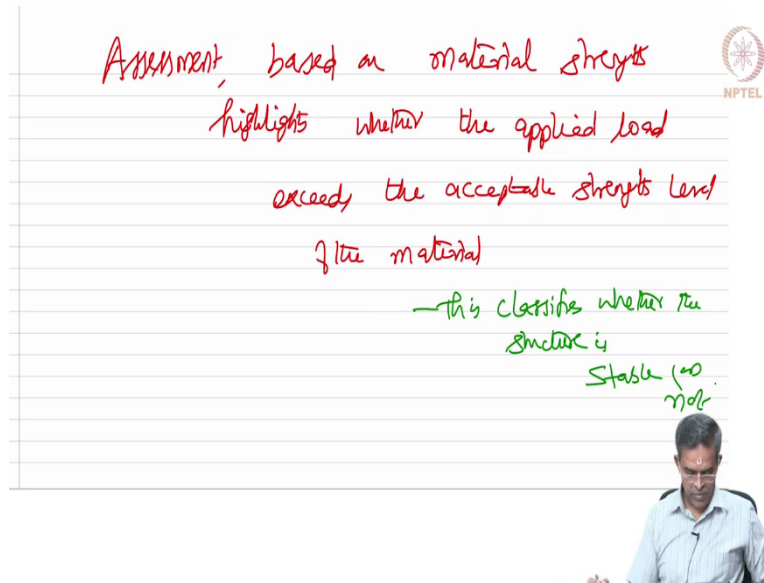 Assessment, based on material strength
NPTEL
highlights whether the applied load
exceeds the acceptable strength level
of the material
- this classifies whether the
structure is
stable (or)
not